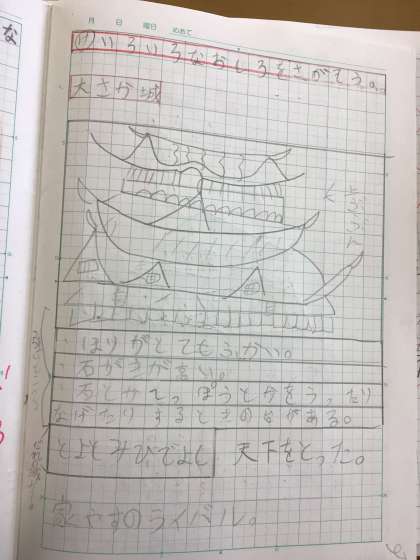 月 日 曜日 めあて
いろいろなおしろをさがそう。
大さか城
・ほりがとてもふかい。
・石がきが高い。
・石とかてっぽうとかをうったり
なげたりするときのあながある。
とよとみひでよし 天下をとった。
家やすのライバル。